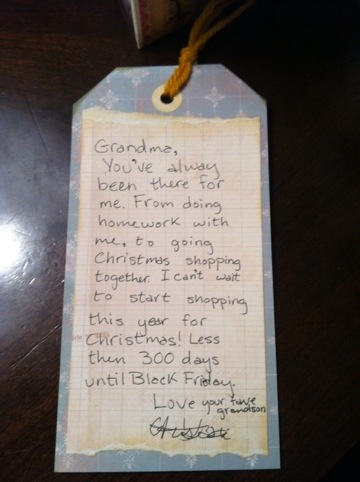 Grandma,
You've alway
been there for
me. From doing
homework with
me, to going
Christmas shopping
together. I can't wait
to start shopping
this year for
Christmas! Less
then 300 days
until Black Friday.
Love your fave
grandson